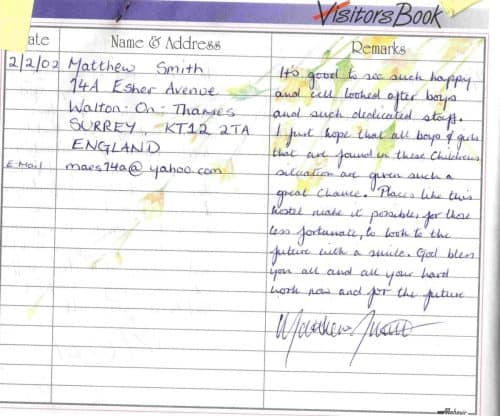 Visitors Book
ate
Name & Address
Remarks
2/2/02
Matthew Smith
74A Esher Avenue
Walton-On-Thames
SURREY, KT12 2TA
ENGLAND
E-Mail
maes74a@yahoo.com
It's good to see such happy
and well looked after boys
and such dedicated staff.
I just hope that all boys & girls
that are found in these childrens
situation are given such a
great chance. Places like this
hostel make it possible, for those
less fortunate, to look to the
future with a smile. God bless
you all and all your hard
work now and for the future
Matthew Smith